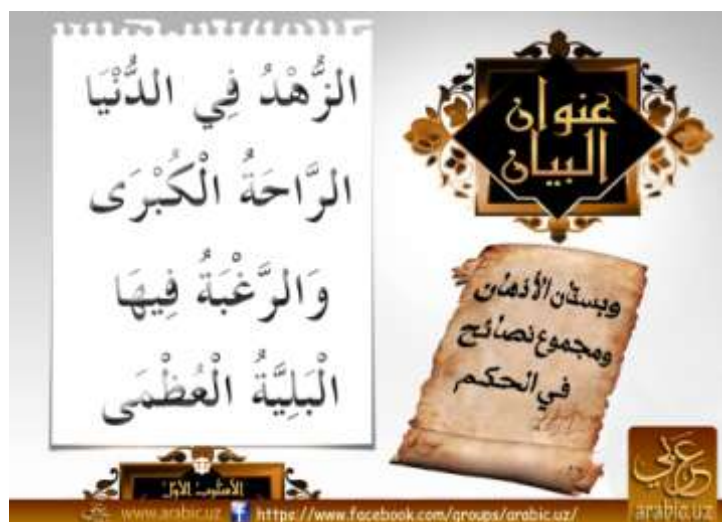 الزُّهْدُ فِي الدُّنْيَا
الرَّاحَةُ الْكُبْرَى
وَالرَّغْبَةُ فِيهَا
الْبَلِيَّةُ الْعُظْمَى
عنوان
البيان
وبستان الأذهان
ومجموع نصائح
في الحكم
الأسلوب الأول
www.arabic.uz
https://www.facebook.com/groups/arabic.uz/
عربي
arabic.uz